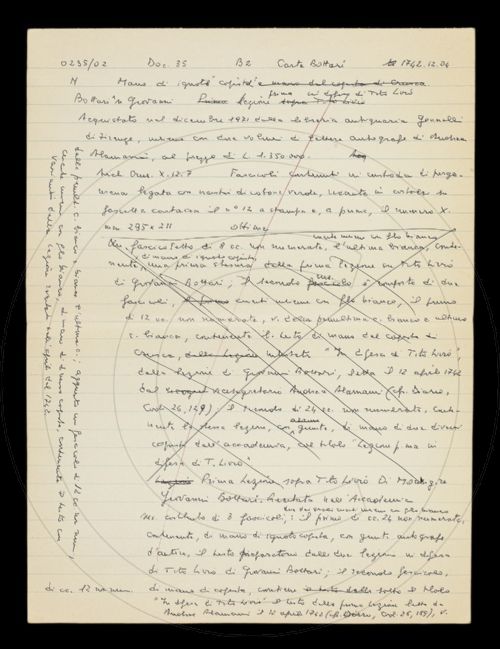 0235/02 Doc. 35 B2 Carte Bottari 1742.12.06
N Mano di ignoto copista e mano del copista di Crusca
Bottari Giovanni Prima Lezione prima in difesa di Tito Livio sopra Tito Livio
Acquistato nel dicembre 1971 dalla libreria antiquaria Gonnelli
di Firenze, insieme con due volumi di lettere autografe di Andrea
Alamanni, al prezzo di L. 1.350.000.
Arch. Crus. X.12.7 Fascicoli contenuti in custodia di perga-
mena legata con nastri di cotone verde, recante in
fascetta cartacea il nº 12 a stampa e, a penna, il numero X.
mm 295 x 211 ottimo
cucite insieme con filo bianco
Un fascicoletto di 8 cc. non numerate, l'ultima bianca, conte-
di mano di ignoto copista,
nente una prima stesura della prima lezione su Tito Livio
di Giovanni Bottari; il secondo è composto di due
fascicoli, cuciti insieme con filo bianco, il primo
di 12 cc. non numerate, v. della penultima c. bianco e ultima
c. bianca, contenente il testo di mano del copista di
Crusca, della lezione intitolata "In difesa di Tito Livio",
della lezione di Giovanni Bottari, letta il 12 aprile 1742
dal vicesegretario Andrea Alamanni (cfr. Diario,
Cod. 26, 189); il secondo di 24 cc. non numerate, conte-
nente la stessa lezione, con alcune giunte, di mano di due diversi
copisti dell'accademia, col titolo "Lezione prima in
difesa di T. Livio"
Prima Lezione sopra Tito Livio Di Monsignore
Giovanni Bottari. Recitata nell'Accademia
Ms. costituito di 3 fascicoli: il primo di cc. 24 non numerate,
contenente, di mano di ignoto copista, con giunte autografe
d'autore, il testo preparatorio delle due lezioni in difesa
di Tito Livio di Giovanni Bottari; il secondo fascicolo,
di cc. 12 non num. di mano di copista, contiene sotto il titolo
"In difesa di Tito Livio" il testo della prima lezione letta da
Andrea Alamanni il 12 aprile 1742 (cfr. Diario, Cod. 26, 189), v.
della penult. c. bianco e bianca l'ultima c.; aggiunto un fascicolo di 12 cc. non num.,
cucite insieme con filo bianco, di mano di diverso copista, contenente il testo con
varianti della lezione recitata nell'aprile del 1742.